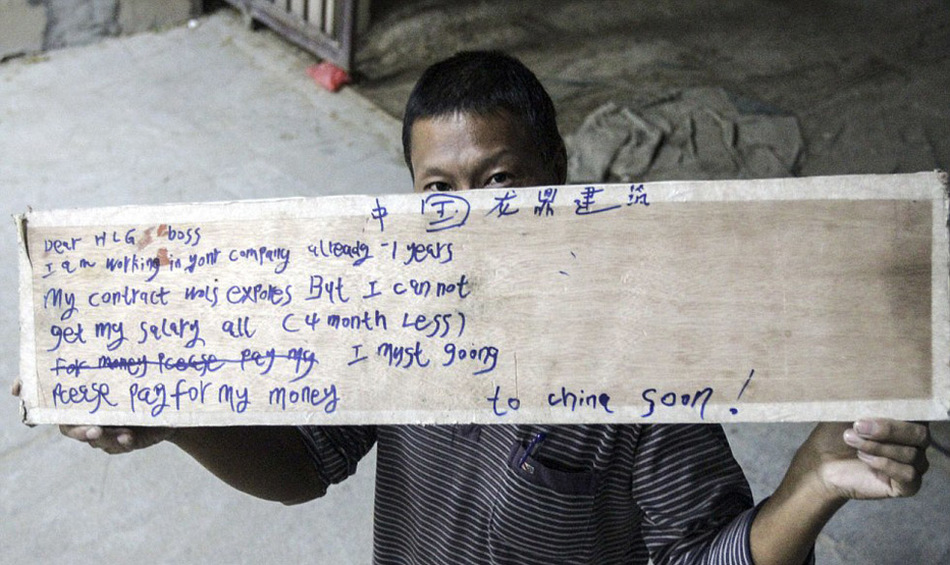 中国龙鼎建筑
Dear HLG boss
I am working in yont company alleady -1 years
My contract wols expoles But I can not
get my salary all (4 month Less)
For money Pcease pay my I myst going
Pcease pay for my money to china soon!